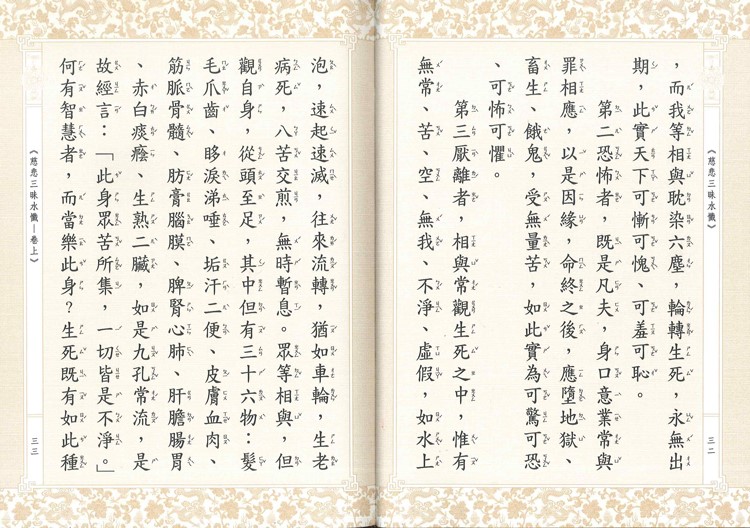 ，而我等相與耽染六塵，輪轉生死，永無出
期，此實天下可慚可愧、可羞可恥。
第二恐怖者，既是凡夫，身口意業常與
罪相應，以是因緣，命終之後，應墮地獄、
畜生、餓鬼，受無量苦，如此實為可驚可恐
、可怖可懼。
第三厭離者，相與常觀生死之中，惟有
無常、苦、空、無我、不淨、虛假，如水上
《慈悲三昧水懺》
三二
泡，速起速滅，往來流轉，猶如車輪，生老
病死，八苦交煎，無時暫息。眾等相與，但
觀自身，從頭至足，其中但有三十六物：髮
毛爪齒、眵淚涕唾、垢汗二便、皮膚血肉、
筋脈骨髓、肪膏腦膜、脾腎心肺、肝膽腸胃
、赤白痰癊、生熟二臟，如是九孔常流，是
故經言：「此身眾苦所集，一切皆是不淨。」
何有智慧者，而當樂此身？生死既有如此種
《慈悲三昧水懺—卷上》
三三